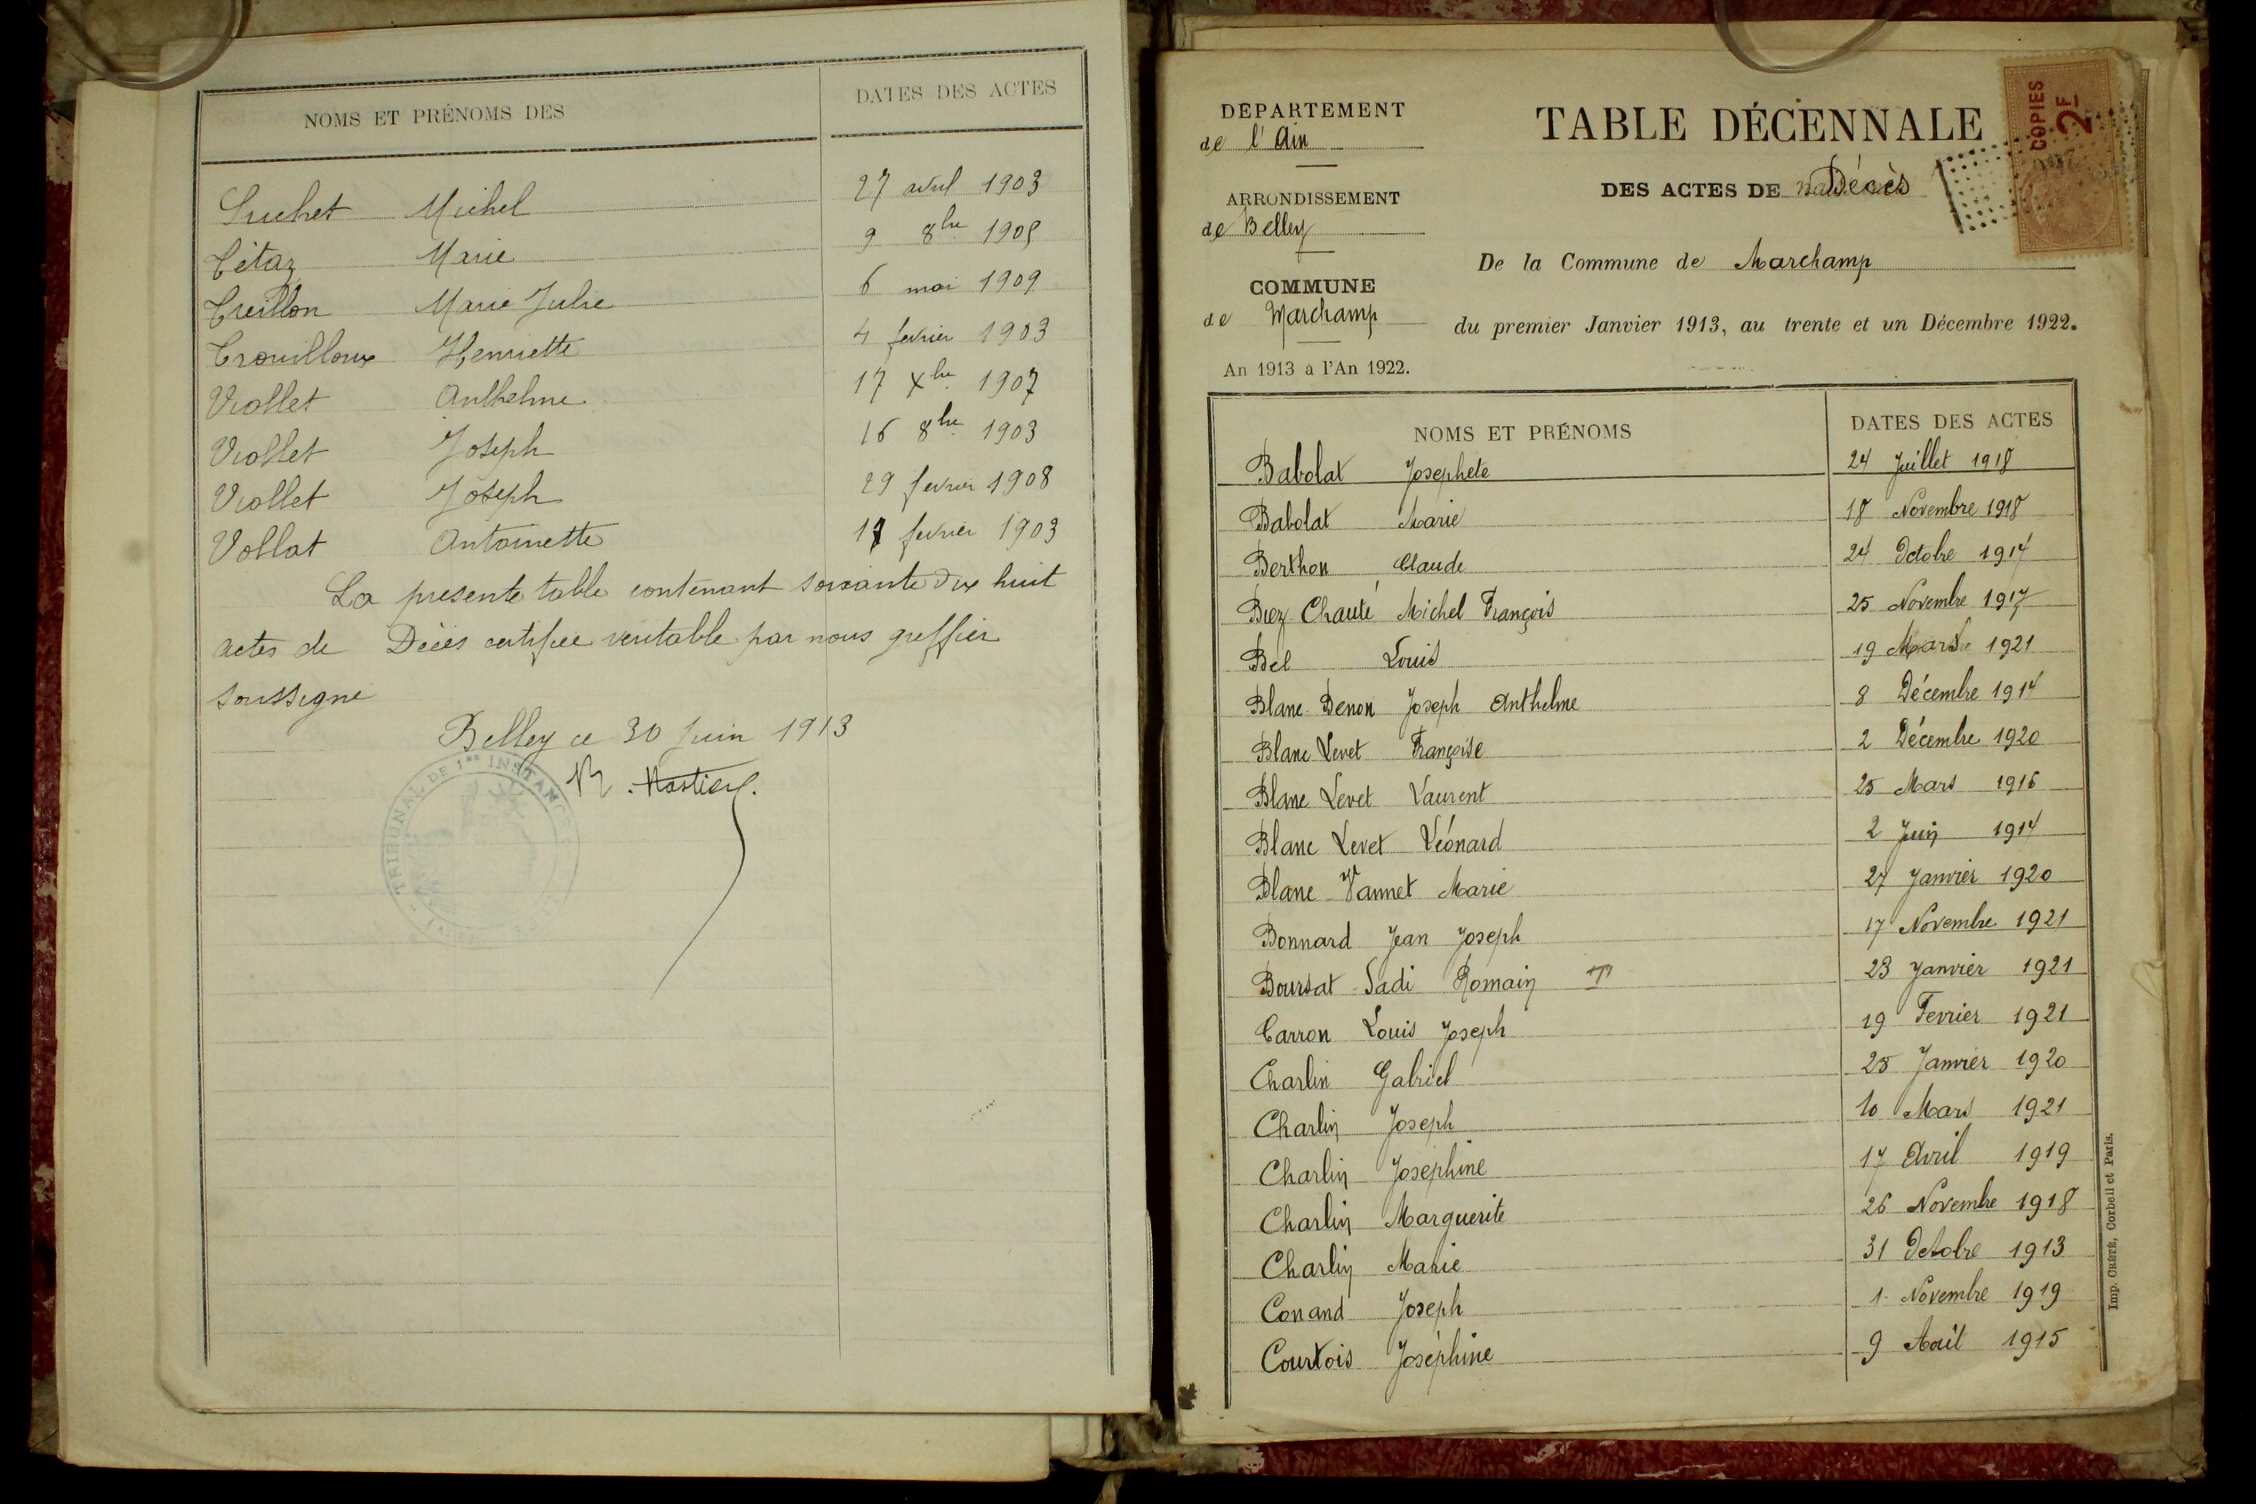 NOMS ET PRÉNOMS DES
DATES DES ACTES
Suchet Michel 27 avril 1903
Tétaz Marie 9 8bre 1905
Treillon Marie Julie 6 mai 1909
Trouilloux Henriette 4 fevrier 1903
Viollet Anthelme 17 Xbre 1907
Viollet Joseph 16 8bre 1903
Viollet Joseph 29 fevrier 1908
Vollat Antoinette 11 fevrier 1903
La presente table contenant soixante dix huit
actes de Décès certifiée veritable par nous greffier
soussigné
Belley ce 30 Juin 1913
TRIBUNAL DE 1re INSTANCE
DÉPARTEMENT
de l'Ain
ARRONDISSEMENT
de Belley
COMMUNE
de Marchamp
An 1913 à l'An 1922.
TABLE DÉCENNALE
DES ACTES DE Décès
De la Commune de Marchamp
du premier Janvier 1913, au trente et un Décembre 1922.
COPIES
2F
NOMS ET PRÉNOMS
DATES DES ACTES
Babolat Josephete 24 Juillet 1918
Babolat Marie 18 Novembre 1918
Berthon Claude 24 Octobre 1914
Biez Chauté Michel François 25 Novembre 1917
Bel Louis 19 Mars 1921
Blanc Benon Joseph Anthelme 8 Décembre 1914
Blanc Levet Françoise 2 Décembre 1920
Blanc Levet Laurent 25 Mars 1916
Blanc Levet Léonard 2 Juin 1914
Blanc Vannet Marie 27 Janvier 1920
Bonnard Jean Joseph 17 Novembre 1921
Boursat Sadi Romain T 23 Janvier 1921
Carron Louis Joseph 19 Fevrier 1921
Charlin Gabriel 25 Janvier 1920
Charlin Joseph 10 Mars 1921
Charlin Joséphine 17 Avril 1919
Charlin Marguerite 26 Novembre 1918
Charlin Marie 31 Octobre 1913
Conand Joseph 1 Novembre 1919
Courtois Joséphine 9 Août 1915
Imp. CRÉTÉ, Corbeil et Paris.